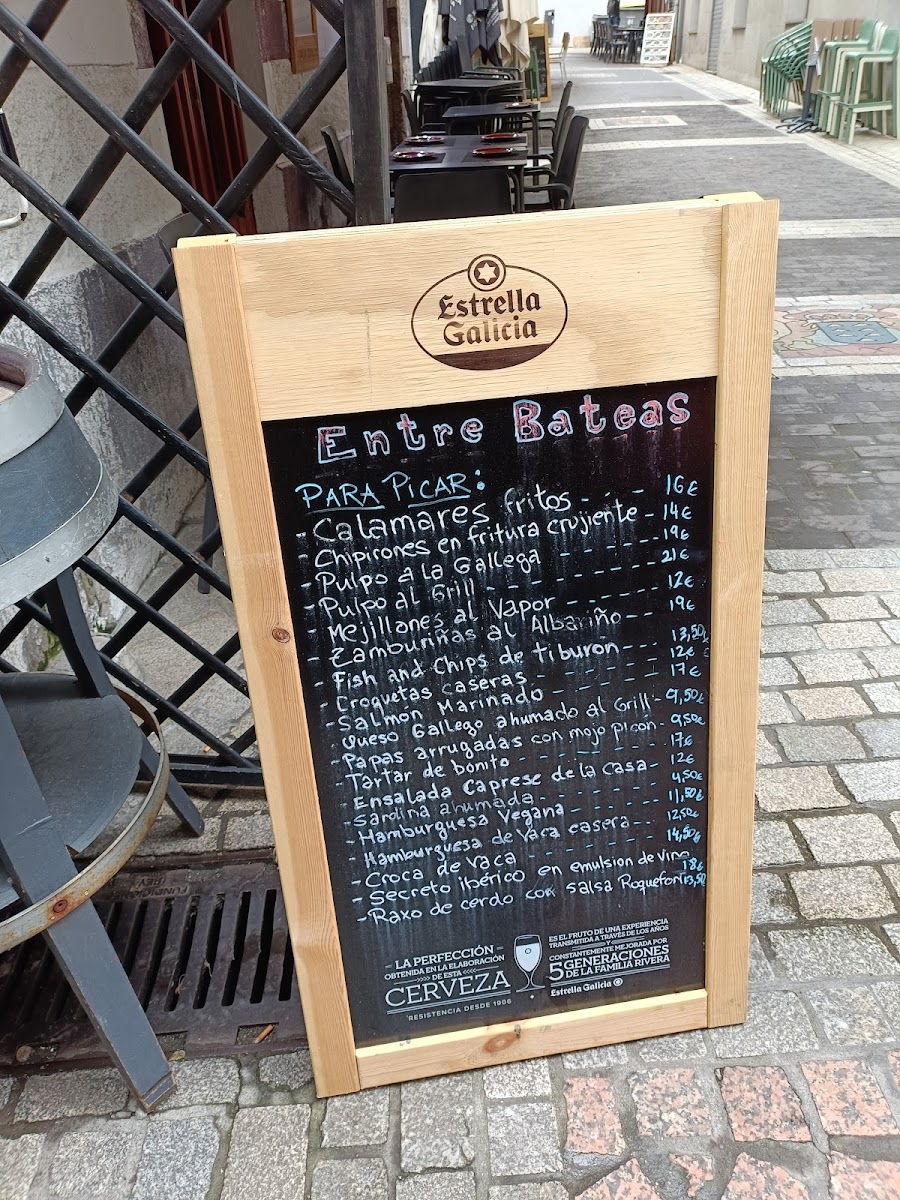 Estrella
Galicia
Entre Bateas
PARA PICAR:
- Calamares fritos - - - - 16€
- Chipirones en fritura crujiente - 14€
- Pulpo a la Gallega - - - - - - 19€
- Pulpo al Grill - - - - - - - - 21€
- Mejillones al Vapor - - - - - 12€
- Zamburiñas al Albariño - - 19€
- Fish and Chips de tiburon - - - 13,50€
- Croquetas caseras - - - - - - 12€
- Salmon Marinado - - - - - - 17€
- Queso Gallego ahumado al Grill - 9,50€
- Papas arrugadas con mojo picon - 9,50€
- Tartar de bonito - - - - - - 17€
- Ensalada Caprese de la casa - 12€
- Sardina ahumada - - - - - - 4,50€
- Hamburguesa Vegana - - - - - 11,50€
- Hamburguesa de vaca casera - - 12,50€
- Croca de vaca - - - - - - - 14,50€
- Secreto ibérico en emulsion de vino 18€
- Raxo de cerdo con salsa Roquefort 13,50
LA PERFECCIÓN
OBTENIDA EN LA ELABORACIÓN
DE ESTA
CERVEZA
RESISTENCIA DESDE 1906
ES EL FRUTO DE UNA EXPERIENCIA
TRANSMITIDA A TRAVÉS DE LOS AÑOS
Y
CONSTANTEMENTE MEJORADA POR
5 GENERACIONES
DE LA FAMILIA RIVERA
Estrella Galicia